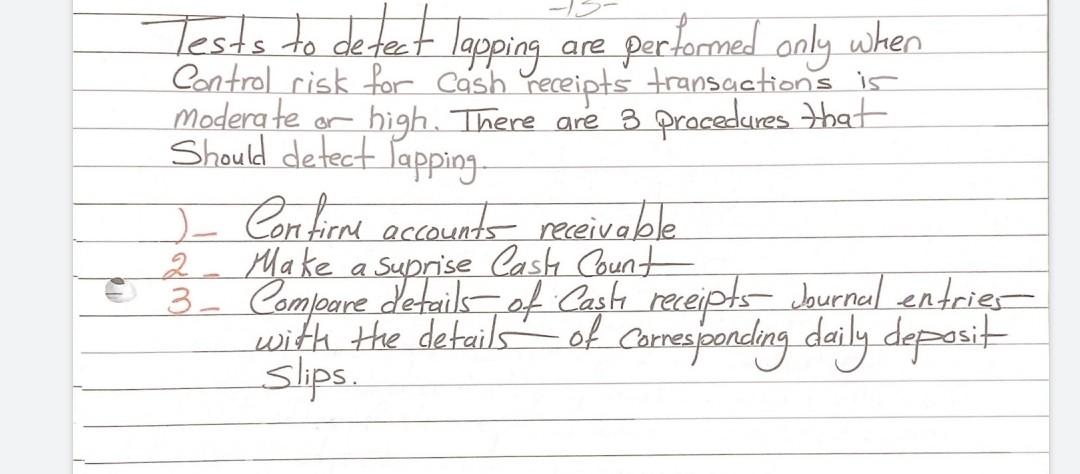 -13-
Tests to detect lapping are performed only when
Control risk for Cash receipts transactions is
moderate or high. There are 3 procedures that
Should detect lapping.
1- Confirm accounts receivable
2 - Make a suprise Cash Count
3- Compare details of Cash receipts Journal entries
with the details of Corresponding daily deposit
Slips.